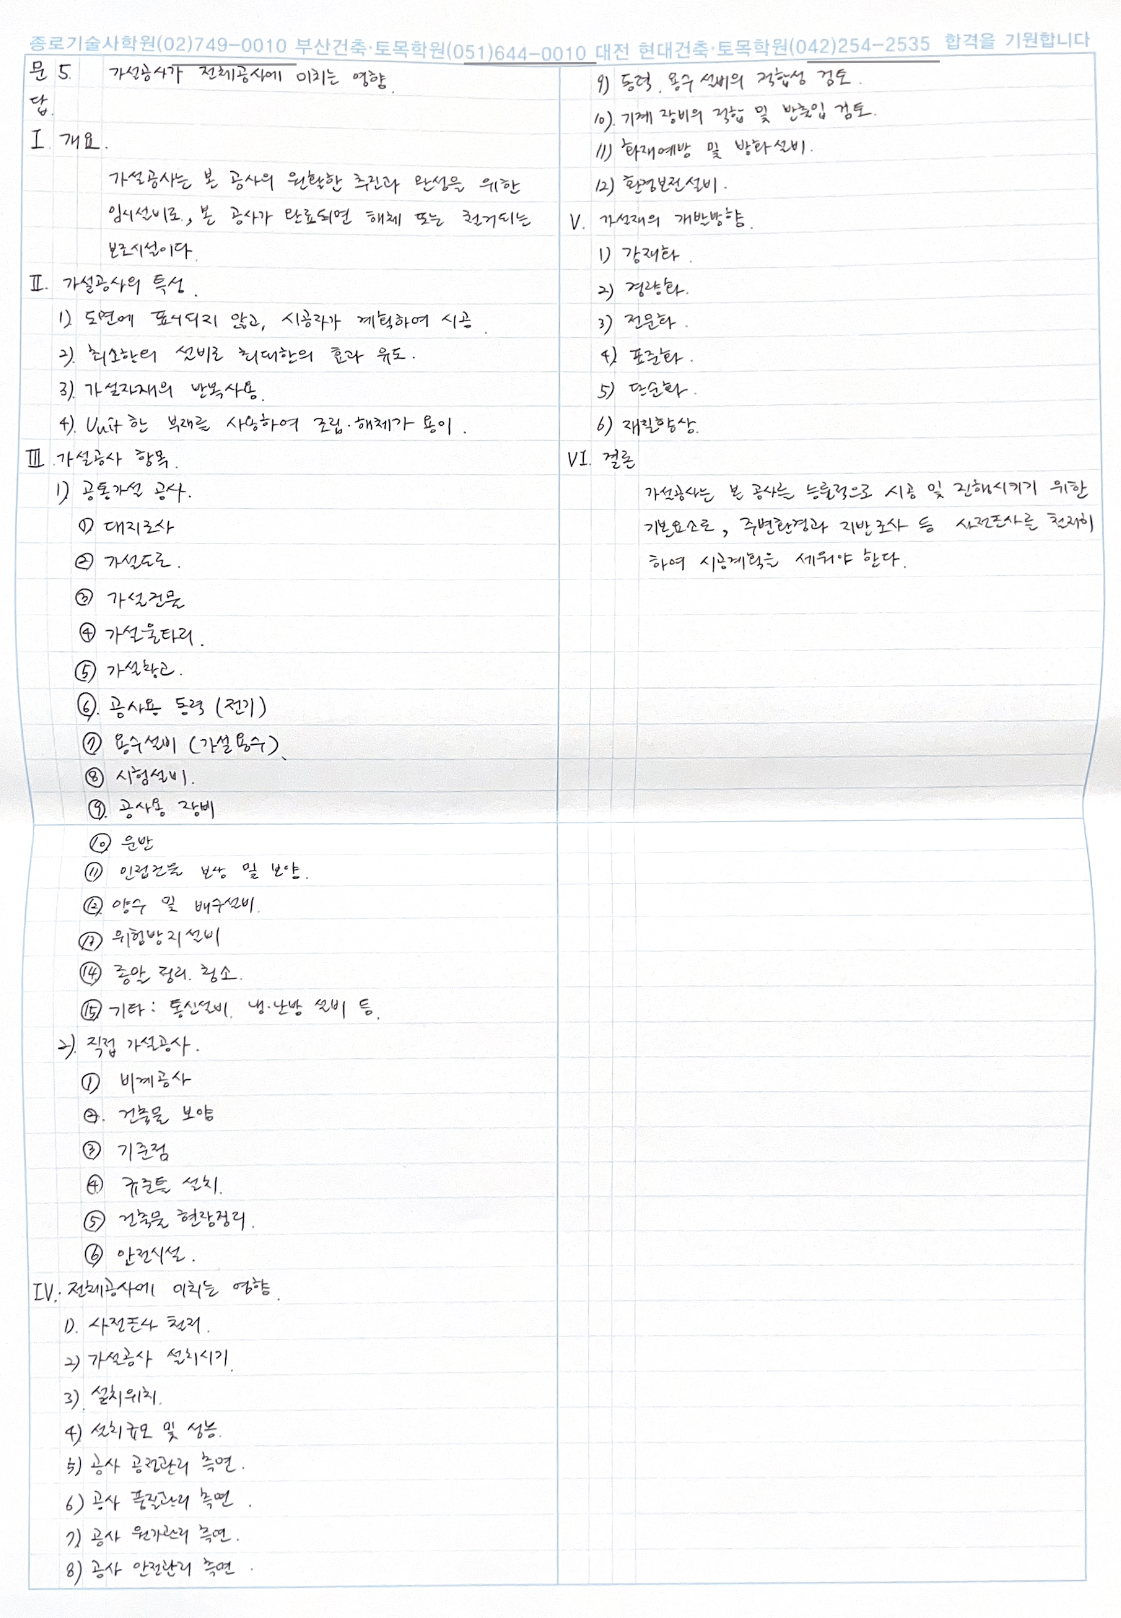 종로기술사학원(02)749-0010 부산건축·토목학원(051)644-0010 대전 현대건축·토목학원(042)254-2535 합격을 기원합니다
문 5. 가설공사가 전체공사에 미치는 영향.
답.
I 개요.
가설공사는 본 공사의 원활한 추진과 완성을 위한
임시설비로, 본 공사가 완료되면 해체 또는 철거되는
보조시설이다.
II. 가설공사의 특성.
1) 도면에 표시되지 않고, 시공자가 계획하여 시공.
2). 최소한의 설비로 최대한의 효과 유도.
3). 가설자재의 반복사용.
4). Unit한 부재를 사용하여 조립·해체가 용이.
III. 가설공사 항목.
1) 공통가설 공사.
① 대지조사
② 가설도로.
③ 가설건물
④ 가설울타리.
⑤ 가설창고.
⑥. 공사용 동력 (전기)
⑦ 용수설비 (가설용수).
⑧ 시험설비.
⑨. 공사용 장비
⑩ 운반
⑪ 인접건물 보상 및 보양.
⑫ 양수 및 배수설비.
⑬ 위험방지설비
⑭ 종말 정리. 청소.
⑮ 기타 : 통신설비. 냉·난방 설비 등.
2). 직접 가설공사.
① 비계공사
②. 건축물 보양
③ 기준점
④ 규준틀 설치.
⑤ 건축물 현장정리.
⑥ 안전시설.
IV. 전체공사에 미치는 영향.
1). 사전조사 철저.
2) 가설공사 설치시기.
3) 설치위치.
4) 설치규모 및 성능.
5) 공사 공정관리 측면.
6) 공사 품질관리 측면.
7) 공사 원가관리 측면.
8) 공사 안전관리 측면.
9) 동력. 용수 설비의 적합성 검토.
10). 기계 장비의 적합 및 반출입 검토.
11) 화재예방 및 방화설비.
12) 환경보전설비.
V. 가설재의 개발방향.
1) 강재화.
2) 경량화.
3) 전문화.
4) 표준화.
5) 단순화.
6) 재질향상.
VI. 결론
가설공사는 본 공사를 능률적으로 시공 및 진행시키기 위한
기본요소로, 주변환경과 지반조사 등 사전조사를 철저히
하여 시공계획을 세워야 한다.